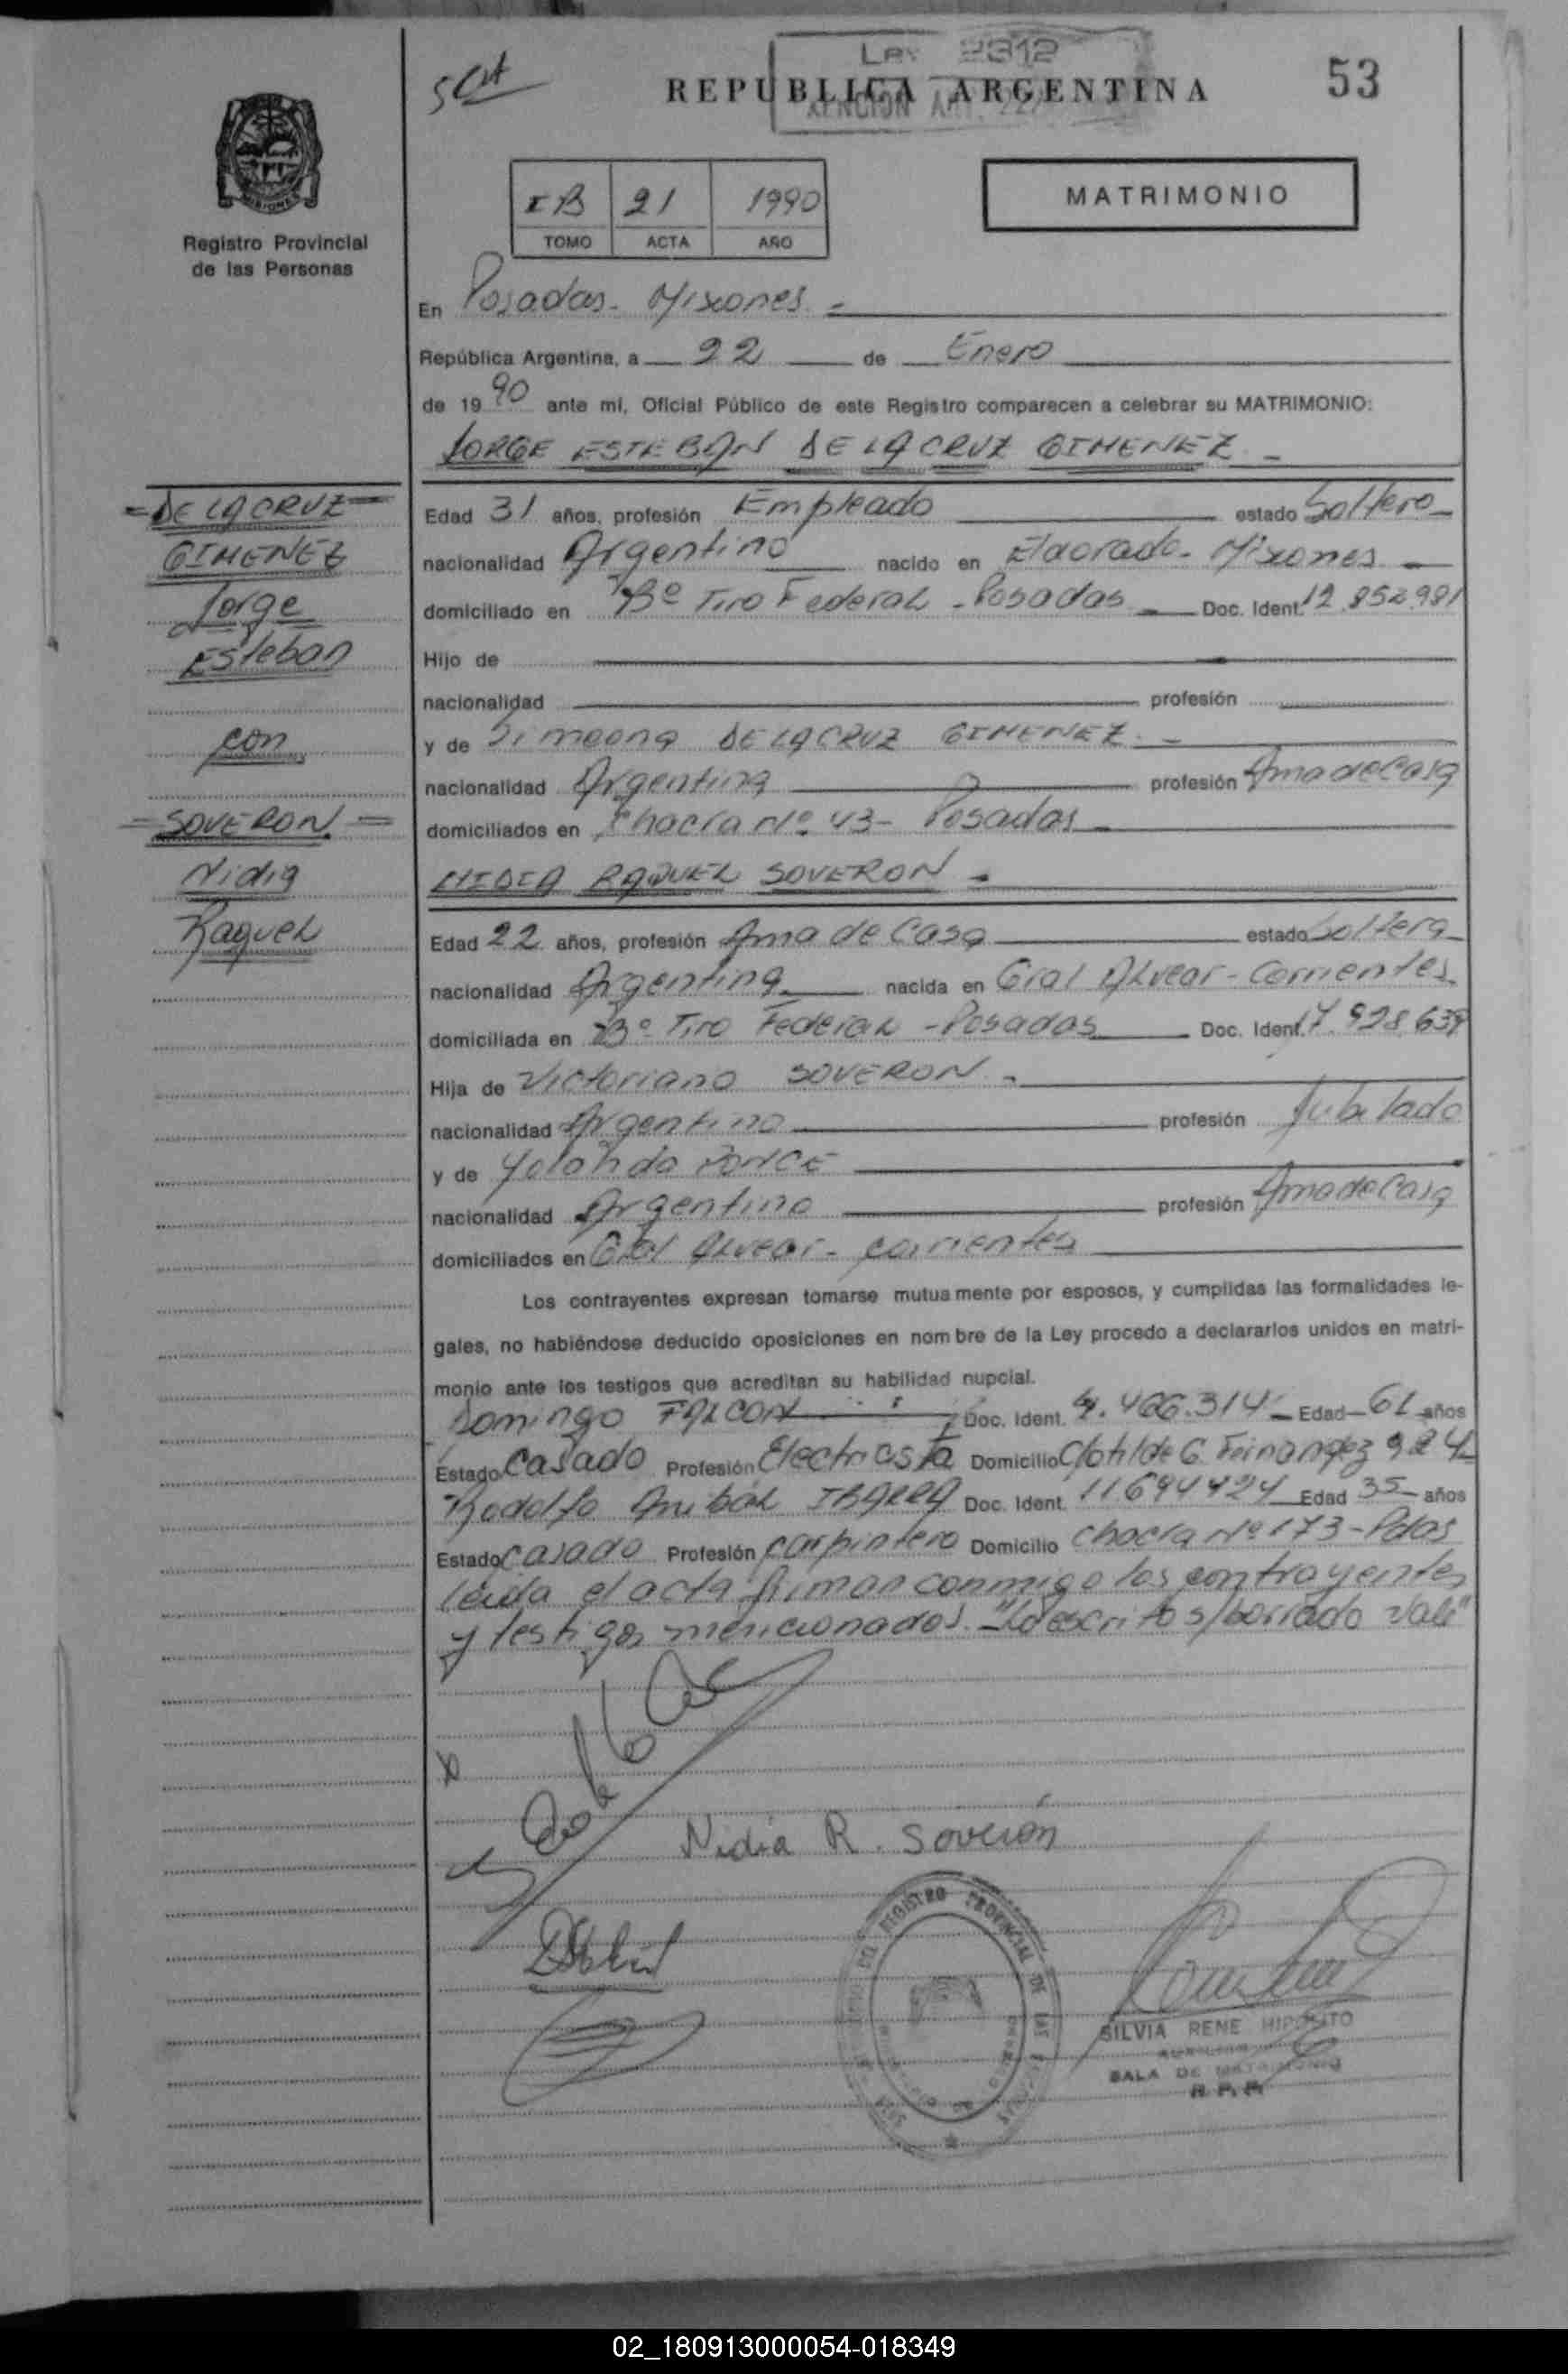 Ley 2312
REPUBLICA ARGENTINA
53
MISIONES
Registro Provincial
de las Personas
I B 21 1990
TOMO ACTA AÑO
MATRIMONIO
En Posadas - Misiones -
República Argentina, a 22 de Enero
de 19 90 ante mi, Oficial Público de este Registro comparecen a celebrar su MATRIMONIO:
JORGE ESTEBAN DE LA CRUZ GIMENEZ -
= DE LA CRUZ =
GIMENEZ
Jorge
Esteban
con
= SOVERON =
Nidia
Raquel
Edad 31 años, profesión Empleado estado Soltero
nacionalidad Argentino nacido en Eldorado - Misiones -
domiciliado en Bº Tiro Federal - Posadas Doc. Ident. 12.852.981
Hijo de
nacionalidad profesión
y de Simeona DE LA CRUZ GIMENEZ. -
nacionalidad Argentina profesión Ama de Casa
domiciliados en Chacra Nº 43 - Posadas -
NIDIA RAQUEL SOVERON -
Edad 22 años, profesión Ama de Casa estado Soltera
nacionalidad Argentina nacida en Gral Alvear - Corrientes
domiciliada en Bº Tiro Federal - Posadas Doc. Ident. 17.928.639
Hija de Victoriano SOVERON -
nacionalidad Argentino profesión Jubilado
y de Yolanda PONCE
nacionalidad Argentina profesión Ama de Casa
domiciliados en Gral Alvear - Corrientes
Los contrayentes expresan tomarse mutuamente por esposos, y cumplidas las formalidades le-
gales, no habiéndose deducido oposiciones en nombre de la Ley procedo a declararlos unidos en matri-
monio ante los testigos que acreditan su habilidad nupcial.
Domingo FALCON Doc. Ident. 4.466.314 - Edad 61 años
Estado Casado Profesión Electricista Domicilio Clotilde G. Fernandez 924
Rodolfo Anibal IBARRA Doc. Ident. 11694424 Edad 35 años
Estado Casado Profesión Carpintero Domicilio Chacra Nº 173 - Pdas
leida el acta firman conmigo los contrayentes
y testigos mencionados. - "Lo escrito s/borrado vale"
Nidia R. Soverón
REGISTRO PROVINCIAL DE LAS
SILVIA RENE HIPOLITO
AUXILIAR
SALA DE MATRIMONIO
R. P. P.
02_180913000054-018349